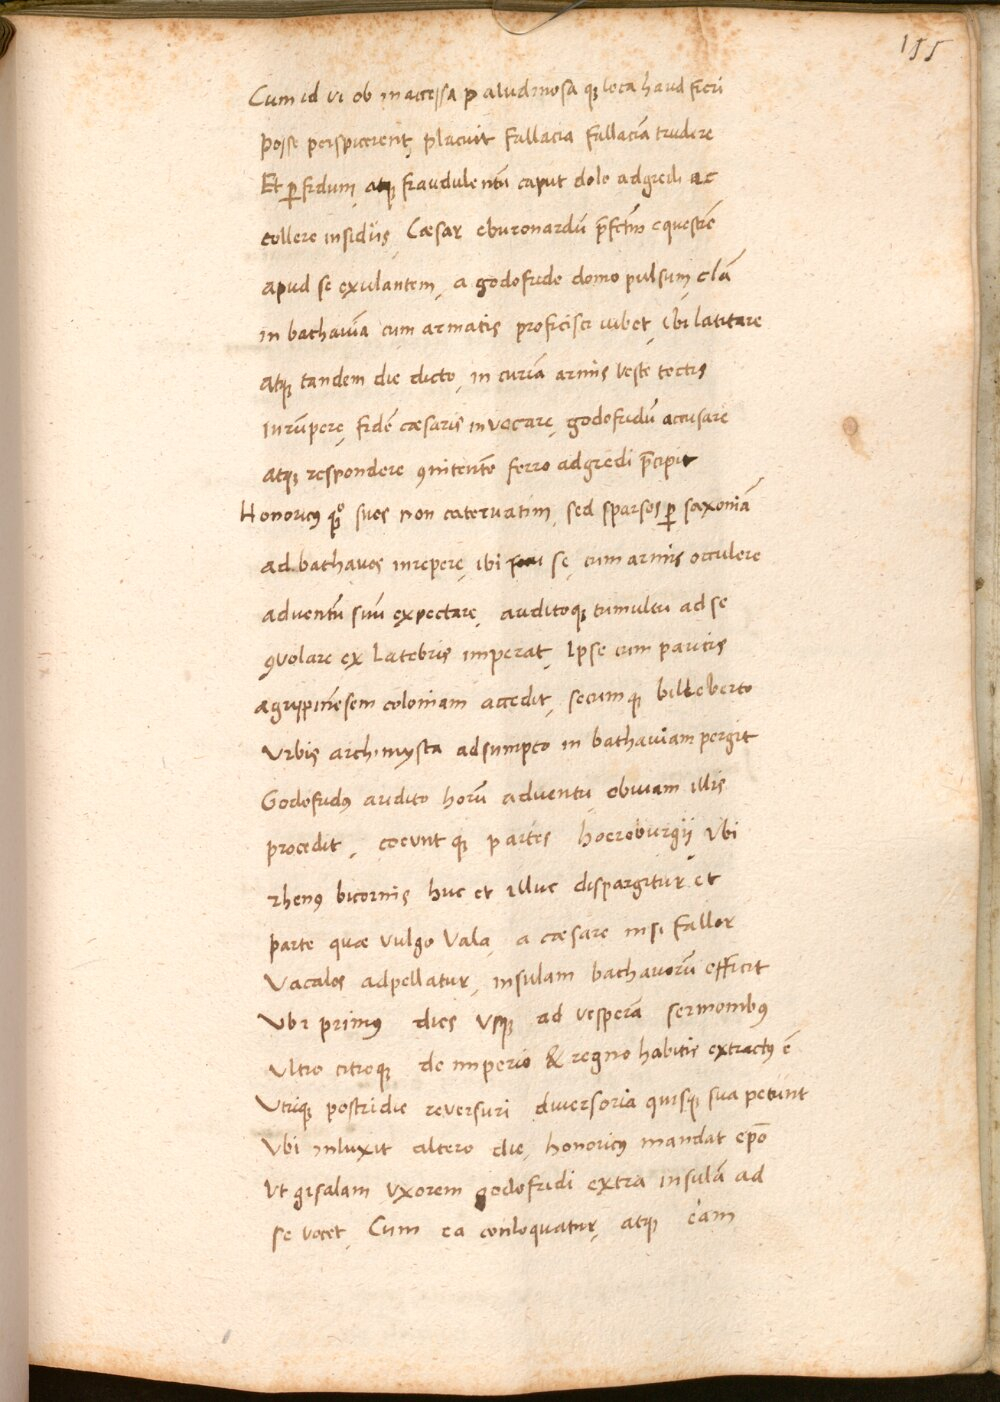 155
Cum id vi ob inaccessa paludinosa q; loca haud fieri
posse perspicerent, placuit fallacia fallaciā trudere
Et ꝑfidum, atq; fraudulentū caput dolo adgredi ac
tollere insidijs, Cæsar eburonardū p̄fctū̄ equestrē
apud se exulantem, a godofrido domo pulsum, clā
in bathauiā cum armatis proficisci iubet, ibi latitare
atq; tandem die dicto, in curiā armis veste tectis
inrūpere, fidē cæsaris invocare, godofridū accusare
atq; respondere ꝯnitentē ferro adgredi p̄cipit
Honoricꝰ suos non catervatim, sed sparsos ꝑ saxoniā
ad bathavos inrepere, ibi se, cum armis occulere
adventū suū expectare, auditoq; tumultu ad se
ꝯvolare ex latebris imperat, Ipse cum paucis
agrippinēsem coloniam accedit, secum q; billeberto
Vrbis archimysta adsumpto in bathaviam pergit
Godofridꝰ audito horū adventu obviam illis
procedit, coeunt q; partes hoereburgij, Vbi
rhenꝰ bicornis huc et illuc dispargitur, et
parte quæ vulgo Vala, a cæsare nisi fallor
Vacalos adpellatur, insulam bathavorū efficit
Vbi primꝰ dies vsq; ad vesperā sermonibꝰ
Vltro citroq; de imperio & regno habitis extractꝰ ē
Vtriq; postridie reversuri diversoria quisq; sua petunt
Vbi inluxit altero die, honoricꝰ mandat ep̄o
Vt gisalam vxorem godofridi extra insulā ad
se vocet, Cum ea conloquatur, atq; eam